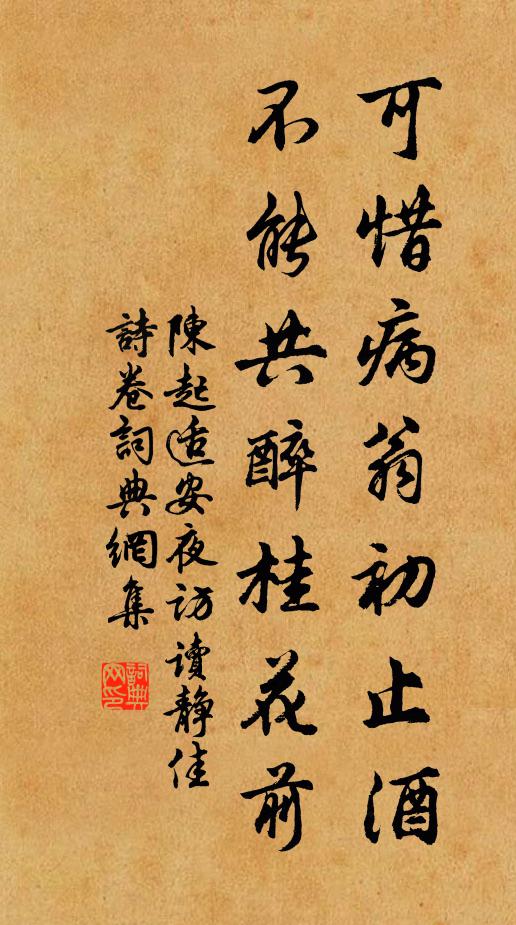 可惜病翁初止酒
不能共醉桂花前
陳起适安夜访讀靜佳
詩卷詞典網集
詞典网印